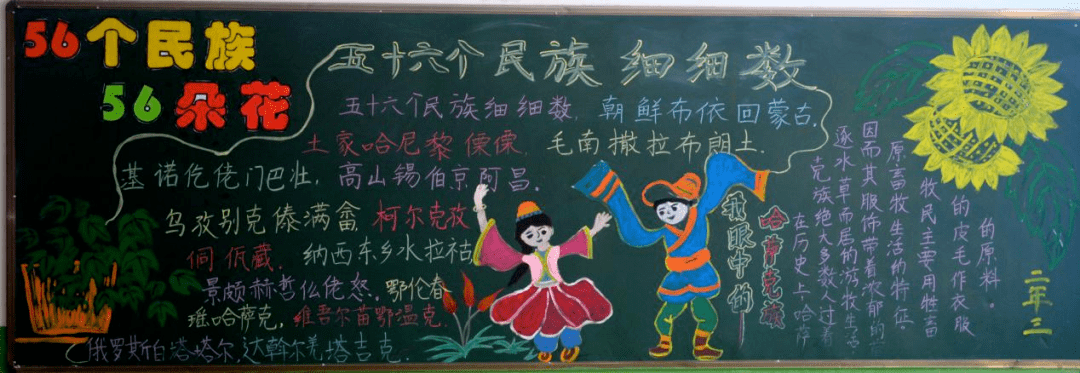 56个民族
56朵花
五十六个民族 细细数
五十六个民族细细数,朝鲜布依回蒙古.
土家哈尼黎傈僳,毛南撒拉布朗土.
基诺仡佬门巴壮,高山锡伯京阿昌.
乌孜别克傣满畲,柯尔克孜
侗佤藏.纳西东乡水拉祜
景颇赫哲仫佬怒.鄂伦春
瑶哈萨克,维吾尔苗鄂温克.
俄罗斯白塔塔尔,达斡尔羌塔吉克.
我眼中的——
哈萨克族
在历史上,哈萨
克族绝大多数人过着
逐水草而居的游牧生活
因而其服饰带着浓郁的
原畜牧生活的特征.
牧民主要用牲畜
的皮毛作衣服
的原料.
二年三